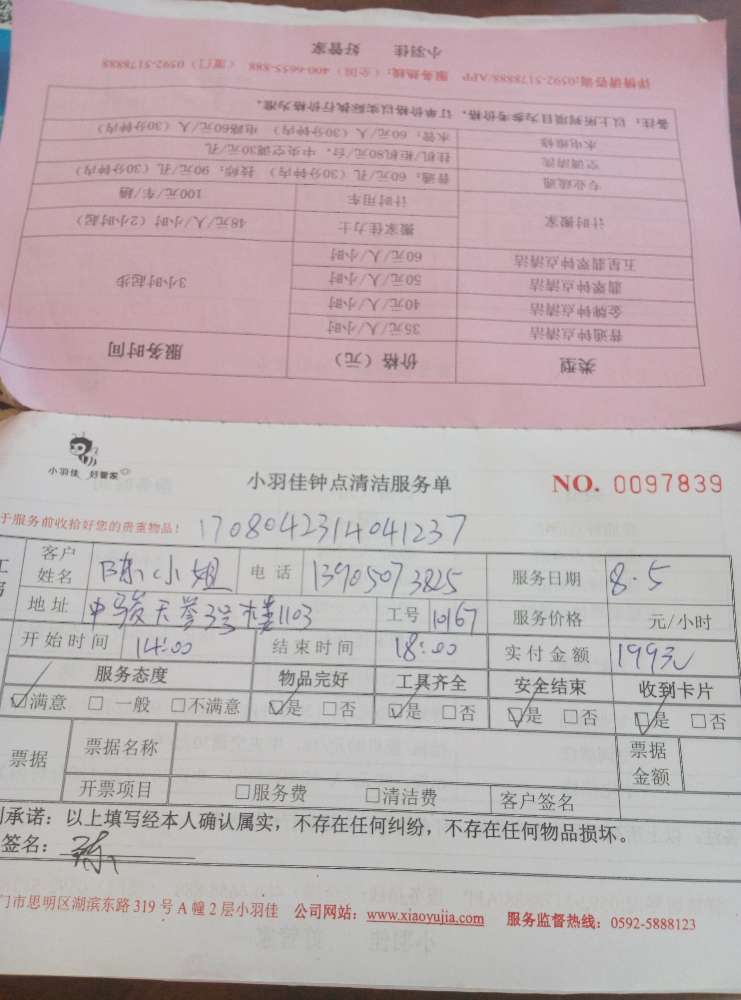 类型 价格（元） 服务时间
普通钟点清洁 35元/人/小时
金牌钟点清洁 40元/人/小时
翡翠钟点清洁 50元/人/小时 3小时起步
五星翡翠钟点清洁 60元/人/小时
计时搬家 搬家佳力士 48元/人/小时（2小时起）
计时用车 100元/车/趟
专业疏通 普通：60元/孔（30分钟内） 技师：90元/孔（30分钟内）
空调清洗 挂机/柜机80元/台，中央空调30元/孔
水电维修 水管：60元/人（30分钟内） 电路60元/人（30分钟内）
备注：以上所列项目为参考价格，订单价格以实际执行价格为准。
详情请咨询:0592-5178888/APP 服务热线：（全国）400-6655-888 （厦门）0592-5178888
小羽佳 好管家
小羽佳 好管家
小羽佳钟点清洁服务单 NO. 0097839
于服务前收拾好您的贵重物品！ 1708042314041237
客户姓名 陈小姐 电话 13905073825 服务日期 8.5
地址 中骏天誉3号楼1103 工号 10167 服务价格 元/小时
开始时间 14:00 结束时间 18:00 实付金额 199元
服务态度 物品完好 工具齐全 安全结束 收到卡片
☑满意 □一般 □不满意 ☑是 □否 ☑是 □否 ☑是 □否 ☑是 □否
票据 票据名称 票据金额
开票项目 □服务费 □清洁费 客户签名
承诺：以上填写经本人确认属实，不存在任何纠纷，不存在任何物品损坏。
签名：陈
门市思明区湖滨东路 319 号 A 幢 2 层小羽佳 公司网站：www.xiaoyujia.com 服务监督热线：0592-5888123